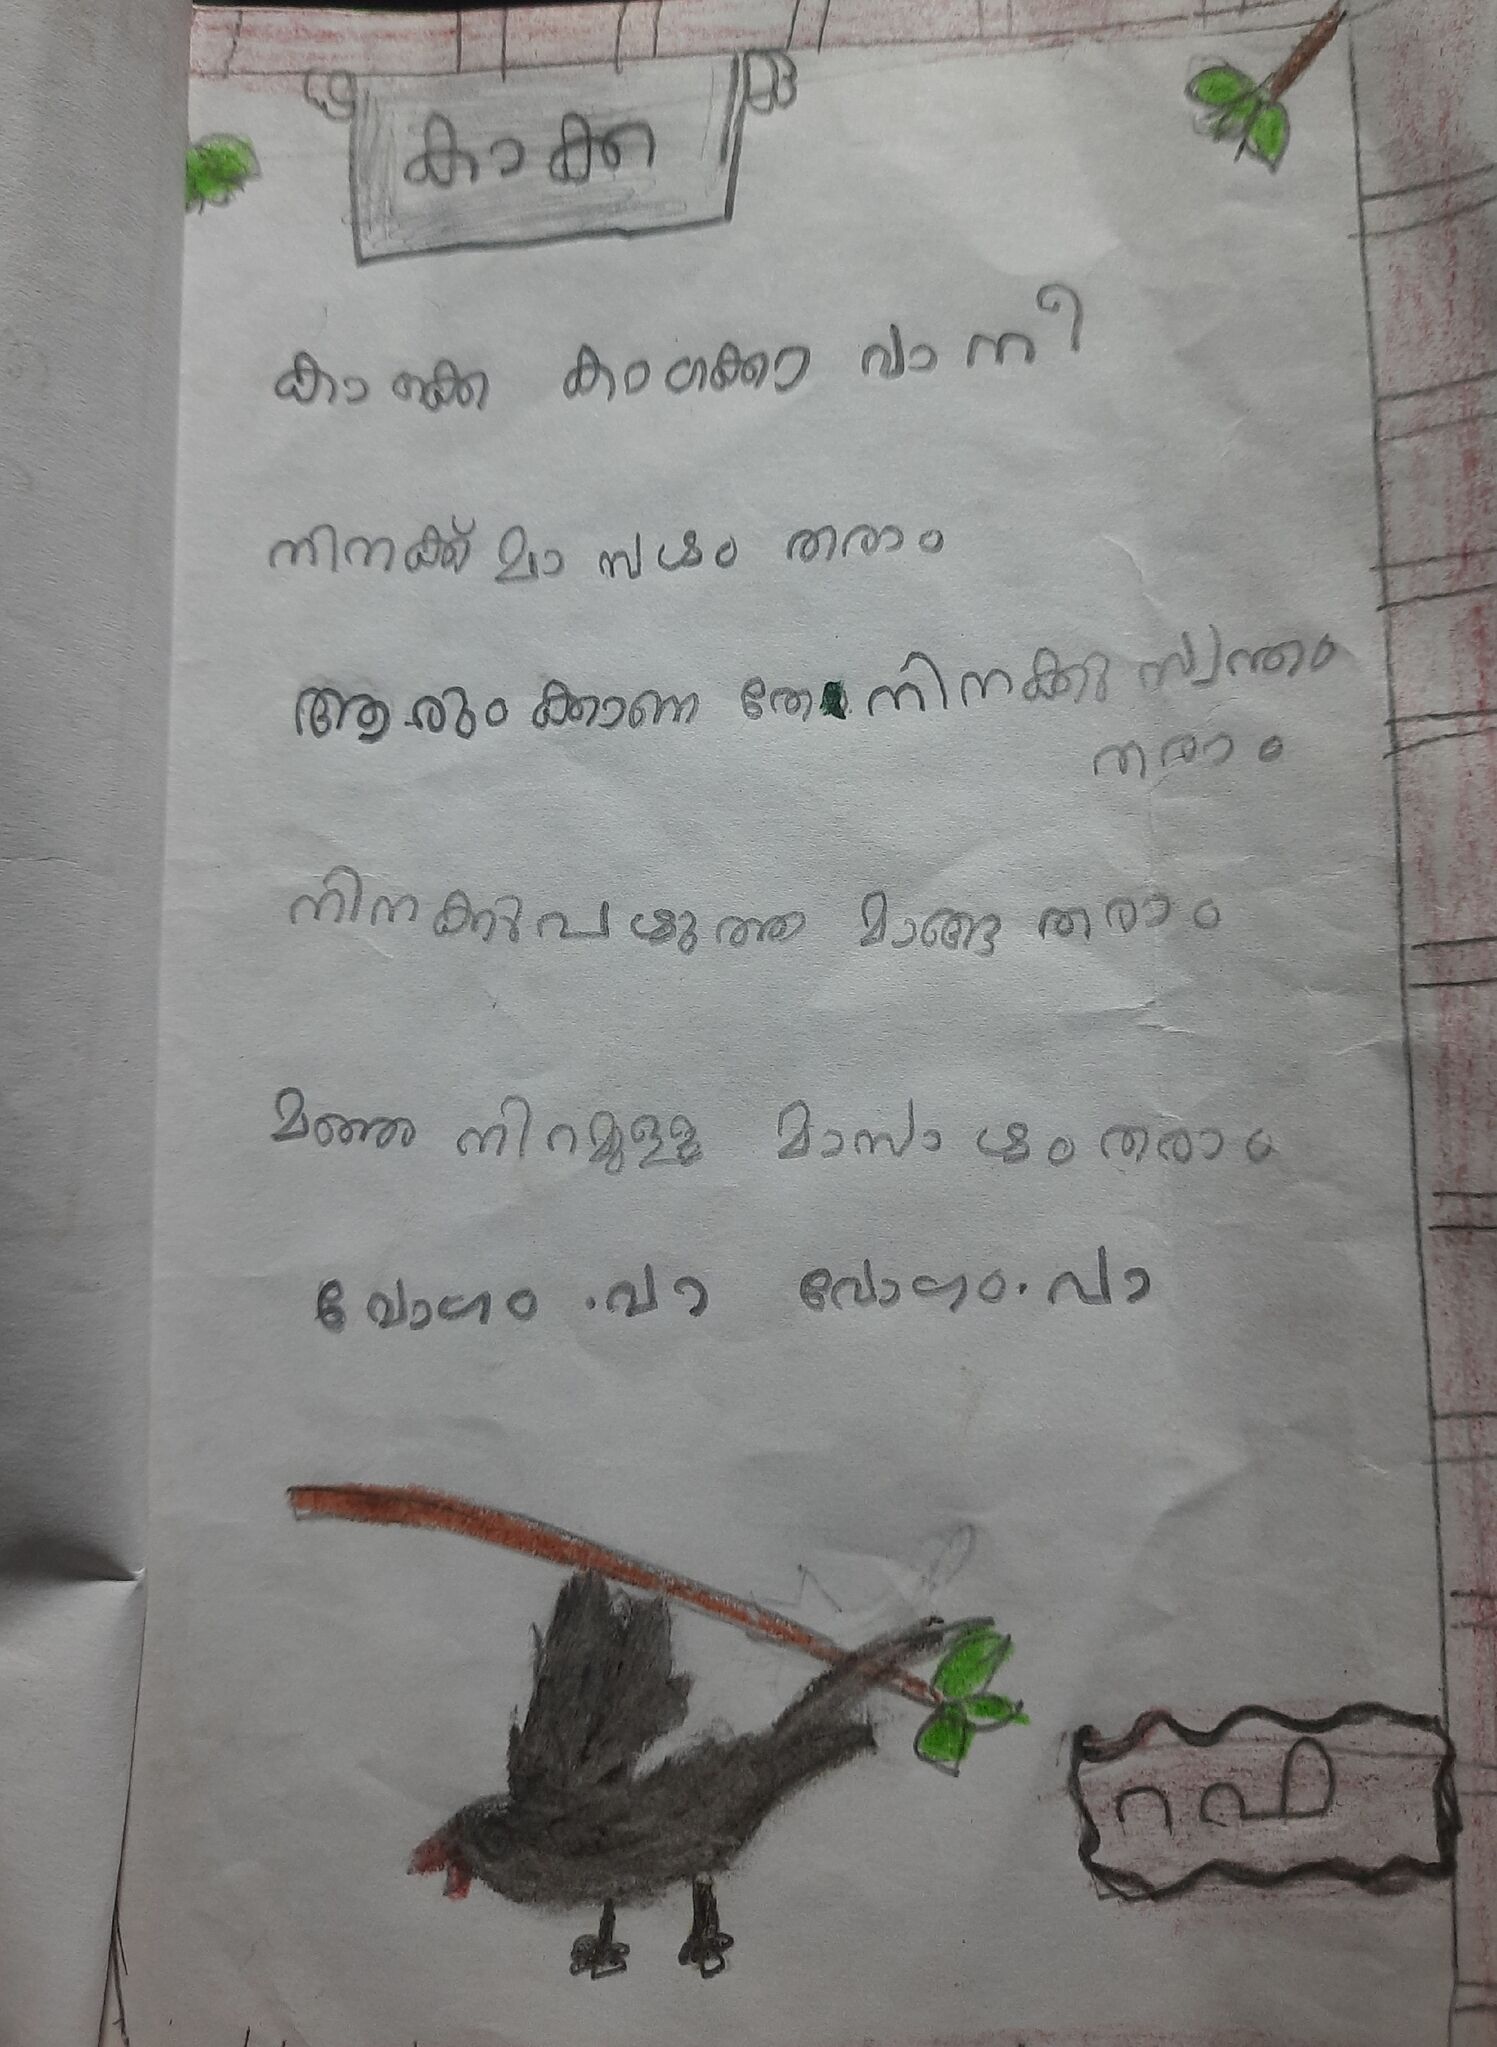 കാക്ക
കാക്കെ കാക്കെ വാ നീ
നിനക്ക് മാ മ്പഴം തരാം
ആരും ക്കാണ തേ നിനക്കു സ്വന്തം
തരാം
നിനക്കു പഴുത്ത മാങ്ങ തരാം
മഞ്ഞ നിറമുള്ള മാമ്പഴം തരാം
വേഗം . വാ വേഗം . വാ
റഫ